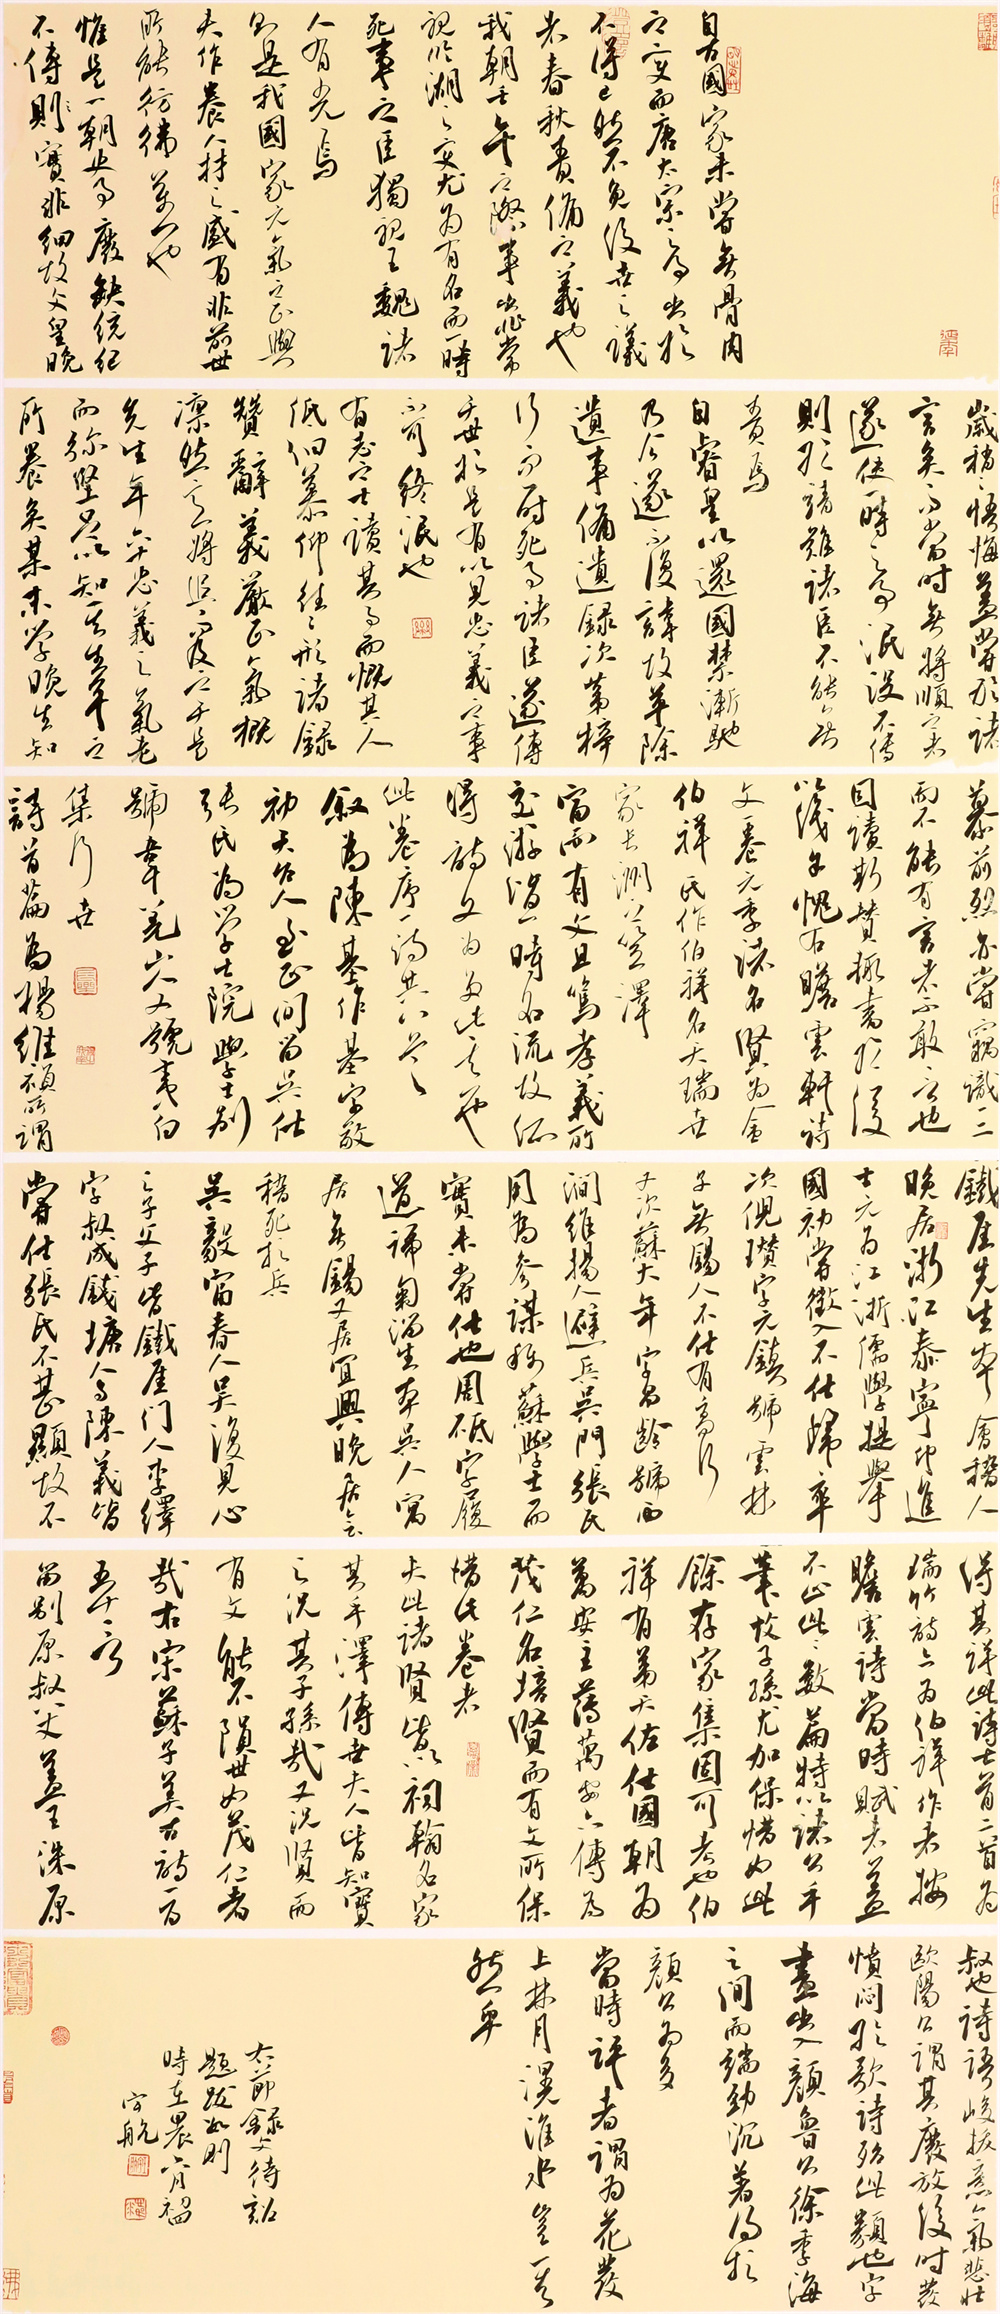 自古國家未嘗無骨肉
之變而唐太宗之為出於
不得已然不免後世之議
者春秋責備之義也
我朝壬午之際事出非常
視臨湖之變尤為有名而一時
死事之臣獨視王魏諸
人有光焉
則是我國家元氣之正與
夫作養人材之盛有非前世
所能彷彿萬一也
惟是一朝典事廢缺統紀
不傳則實非細故文皇晚
歲稍稍悟悔蓋嘗形諸
言矣而當時無將順之
遂使一時之事泯沒不傳
則於靖難諸臣不能無
責焉
自睿皇以還國禁漸馳
乃後遂不復諱故革除
遺事備遺錄次第梓
行而死事諸臣遂傳
於世於是有以見忠義之事
不可終泯也
有志之士讀其事而慨其人
低回慕仰往往形諸錄
贊辭義嚴正氣概
凜然
先生年六十忠義之氣老
而彌堅足以知其生平之
所養矣某末學晚生知
慕前烈亦嘗竊識一二
而不能有言者不敢言也
因讀斯贊輒書於後
以識予愧右瞻雲軒詩
文一卷元季諸名賢為金
伯祥氏作伯祥名天瑞世
家長洲之笠澤
富而有文且篤孝義所
交游皆一時名流故征
得詩文為多此其一也
此卷序一詩共八首
敘為陳基作基字敬
初天台人至正間留吳仕
張氏為學士院學士別
號韋羌山人又號夷白
集行世
詩首篇為楊維禎所謂
鐵崖先生本會稽人
晚居浙江泰寧中進
士元為江浙儒學提舉
國初嘗徵入不仕歸卒
次倪瓚字元鎮號雲林
子無錫人不仕有高行
又次蘇大年字昌齡號西
澗維揚人避兵吳門張氏
用為參謀稱蘇學士而
實未嘗仕也周砥字履
道號匊溜生本吳人寓
居無錫又居宜興晚居會
稽死於兵
吳毅富春人吳復見心
之子父子皆鐵崖門人李繹
字叔成錢塘人与陳義皆
嘗仕張氏不甚顯故不
得其詳此詩七首二首為
瑞竹詩亦為伯祥作者按
瞻雲詩當時賦者蓋
不止此此數篇特以諸公手
筆故子孫尤加保惜如此
餘存家集固可考也伯
祥有弟天佐仕國朝為
萬安主簿萬安六傳為
茂仁名培賢而有文所保
惜此卷者
夫此諸賢皆詞翰名家
其手澤傳世夫人皆知寶
之況其子孫哉又況賢而
有文能不隕世如茂仁者
哉右宋蘇子美古詩一百
五十言
留別原叔八丈蓋王洙原
叔也詩語峻拔意氣悲壯
歐陽公謂其廢放後時發
憤悶於歌詩殆此類也字
畫出入顏魯公徐季海
之間而端勁沉著得於
顏公為多
當時評者謂為花發
上林月滉淮水豈一其
然乎
右節錄文待詔
題跋如則
時在晨
宇航